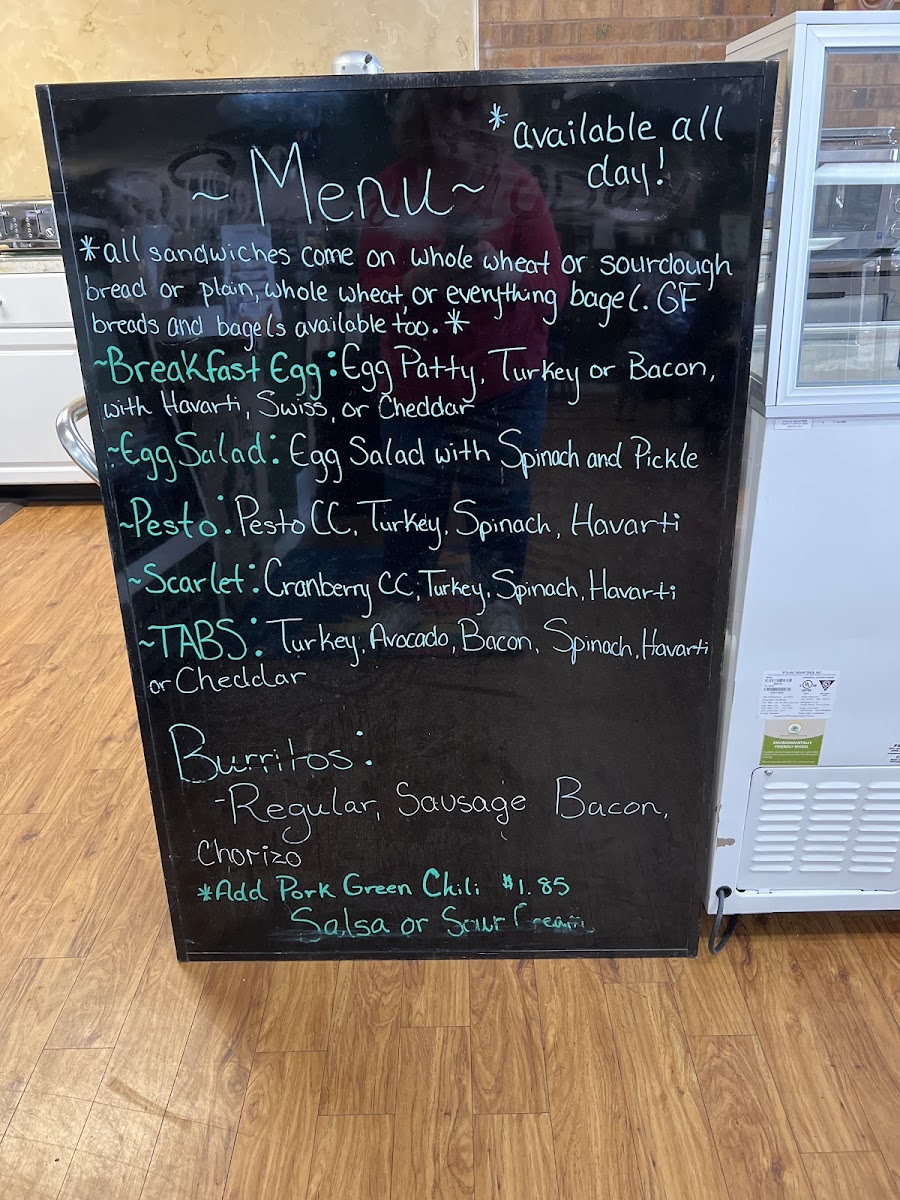 *available all
day!
~Menu~
*all sandwiches come on whole wheat or sourdough
bread or plain, whole wheat, or everything bagel. GF
breads and bagels available too.*
~Breakfast Egg: Egg Patty, Turkey or Bacon,
with Havarti, Swiss, or Cheddar
~Egg Salad: Egg Salad with Spinach and Pickle
~Pesto: Pesto CC, Turkey, Spinach, Havarti
~Scarlet: Cranberry CC, Turkey, Spinach, Havarti
~TABS: Turkey, Avocado, Bacon, Spinach, Havarti
or Cheddar
Burritos:
-Regular, Sausage Bacon,
Chorizo
*Add Pork Green Chili $1.85
Salsa or Sour Cream
ENVIRONMENTALLY
FRIENDLY MODEL